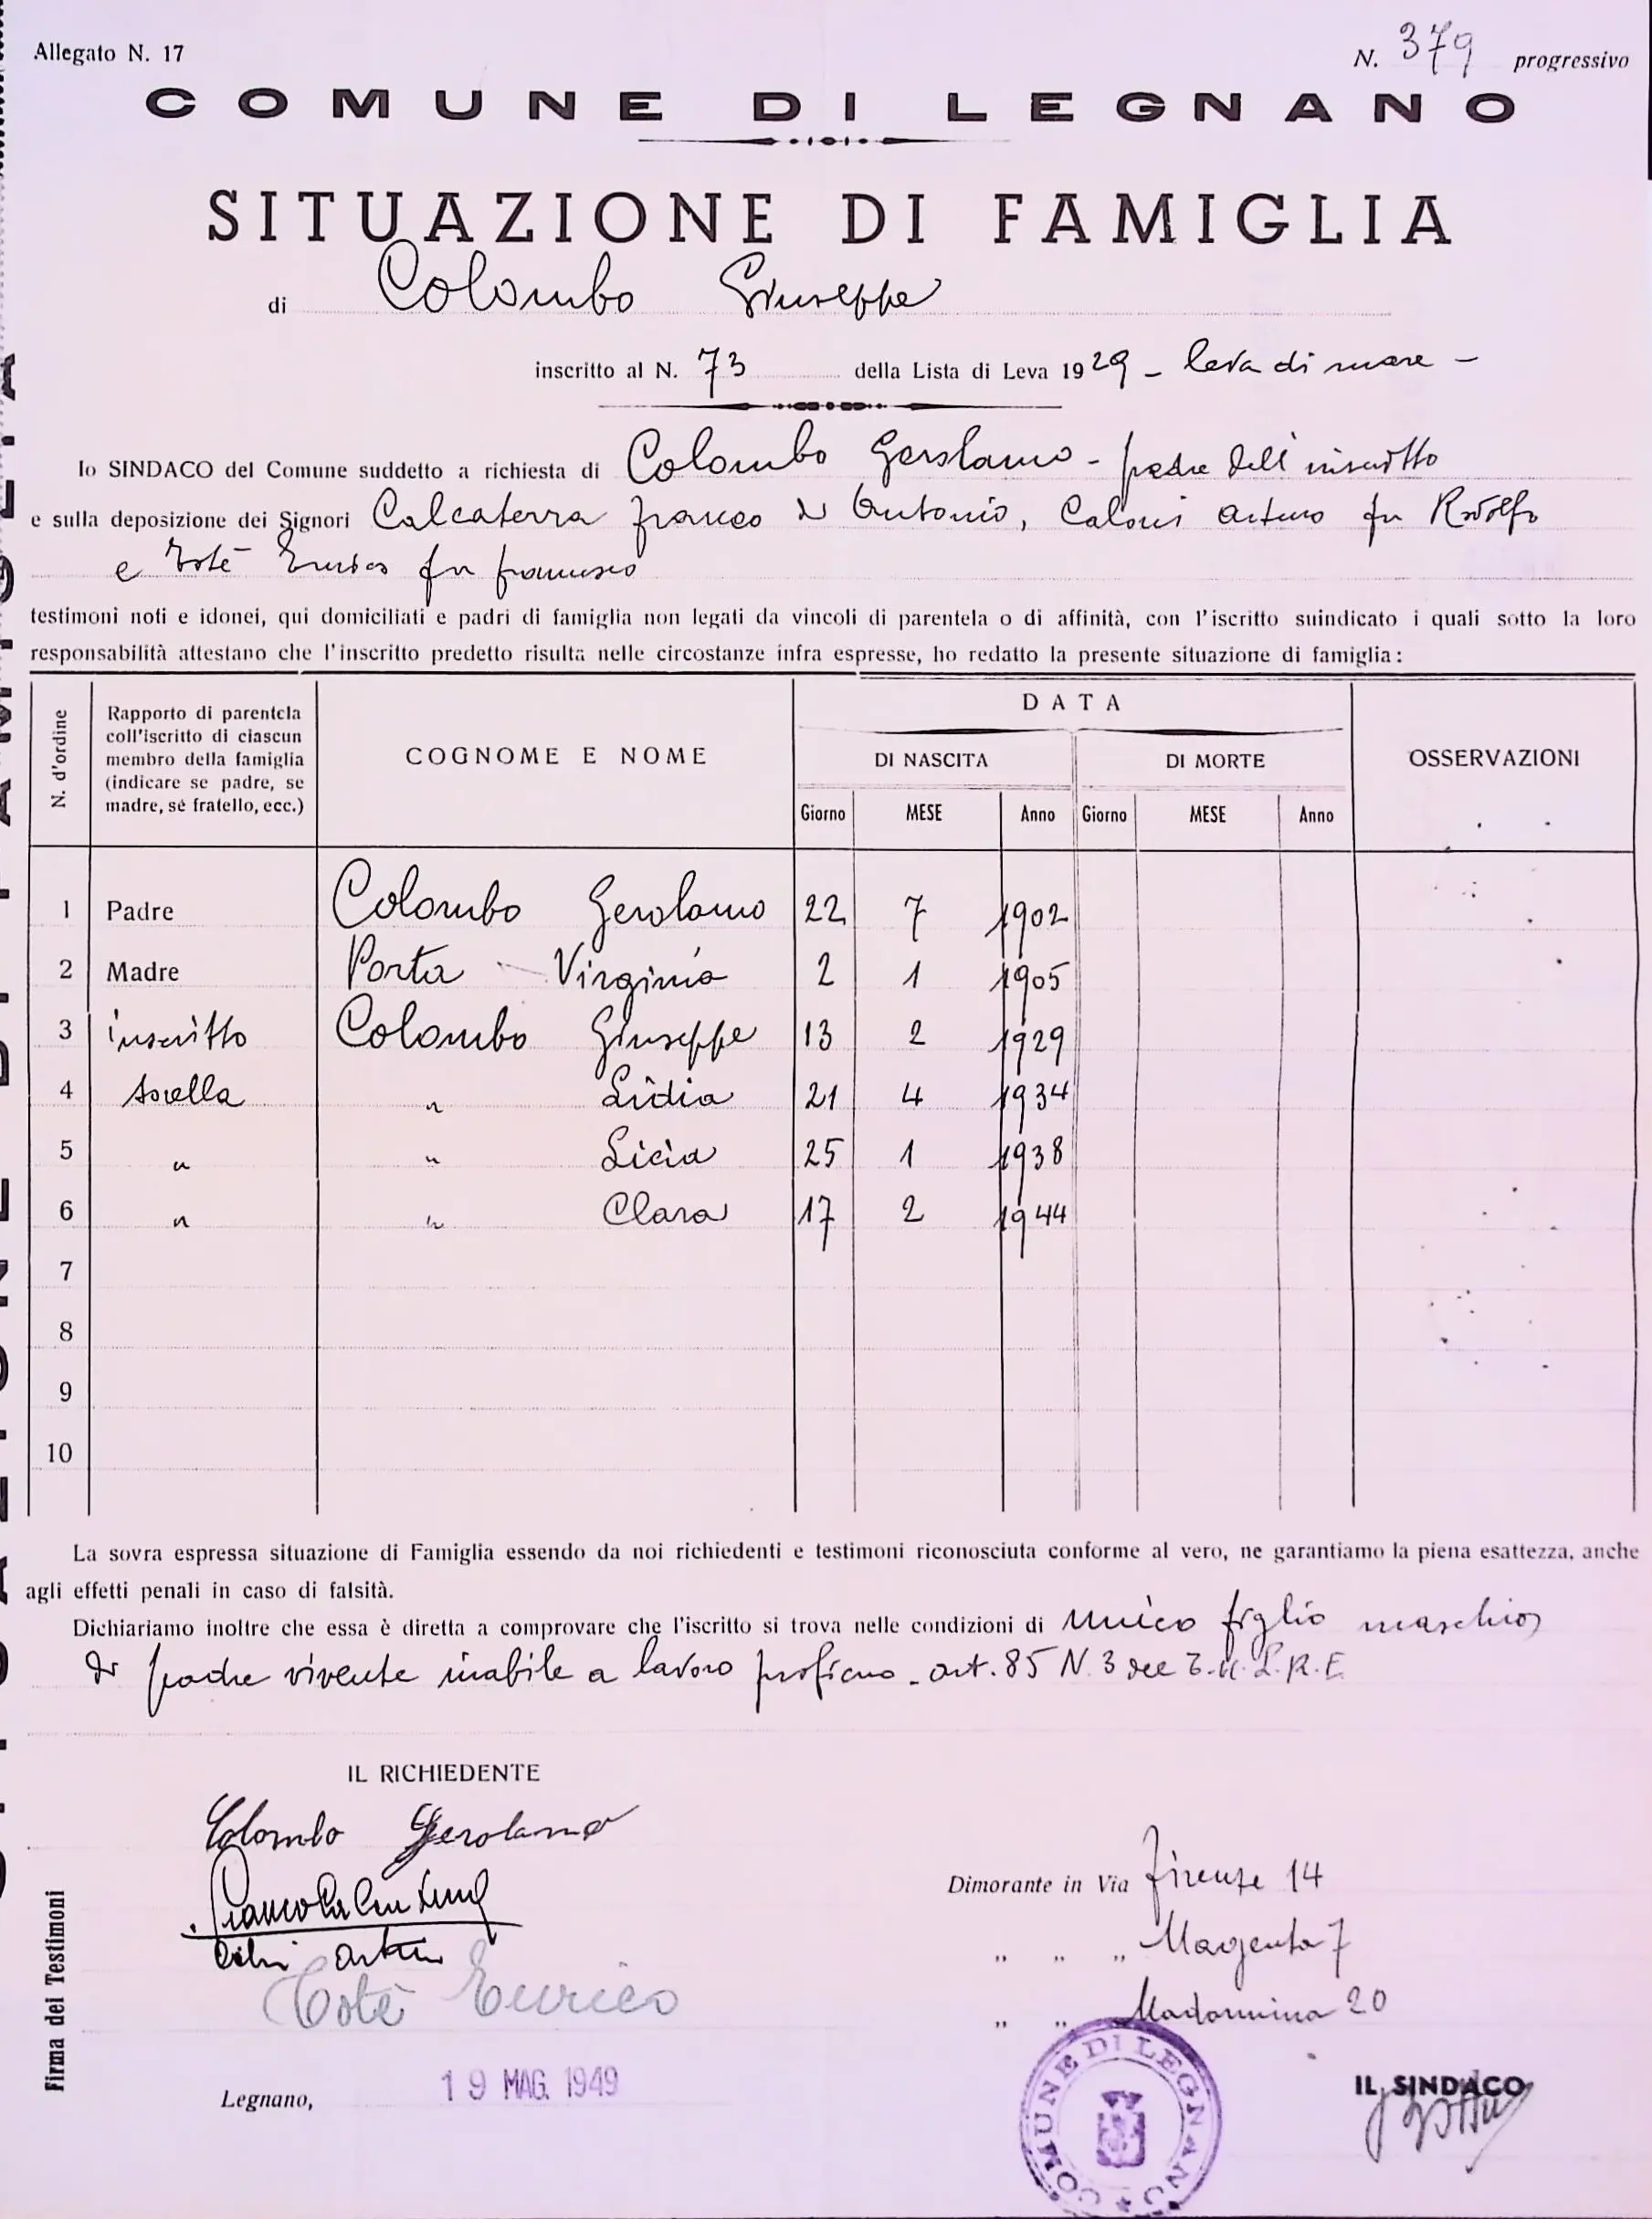 Allegato N. 17
N. 379 progressivo
COMUNE DI LEGNANO
SITUAZIONE DI FAMIGLIA
di Colombo Giuseppe
inscritto al N. 73 della Lista di Leva 1929 - leva di mare -
Io SINDACO del Comune suddetto a richiesta di Colombo Gerolamo - padre dell'inscritto
e sulla deposizione dei Signori Calcaterra Franco di Antonio, Arturo fu Rodolfo
e Totè Enrico fu Francesco
testimoni noti e idonei, qui domiciliati e padri di famiglia non legati da vincoli di parentela o di affinità, con l'iscritto suindicato i quali sotto la loro
responsabilità attestano che l'inscritto predetto risulta nelle circostanze infra espresse, ho redatto la presente situazione di famiglia:
N. d'ordine
Rapporto di parentela
coll'iscritto di ciascun
membro della famiglia
(indicare se padre, se
madre, sé fratello, ecc.)
COGNOME E NOME
DATA
DI NASCITA DI MORTE
Giorno MESE Anno Giorno MESE Anno
OSSERVAZIONI
1 Padre Colombo Gerolamo 22 7 1902
2 Madre Porta - Virginia 2 1 1905
3 inscritto Colombo Giuseppe 13 2 1929
4 Sorella " Lidia 21 4 1934
5 " " Licia 25 1 1938
6 " " Clara 17 2 1944
7
8
9
10
La sovra espressa situazione di Famiglia essendo da noi richiedenti e testimoni riconosciuta conforme al vero, ne garantiamo la piena esattezza, anche
agli effetti penali in caso di falsità.
Dichiariamo inoltre che essa è diretta a comprovare che l'iscritto si trova nelle condizioni di unico figlio maschio
di padre vivente inabile a lavoro proficuo - art. 85 N. 3 del T.U.L.R.E.
IL RICHIEDENTE
Colombo Gerolamo
Firma dei Testimoni
Franco
Totè Enrico
Dimorante in Via Firenze 14
" " " Magenta 7
" " Madonnina 20
Legnano, 19 MAG. 1949
COMUNE DI LEGNANO
IL SINDACO